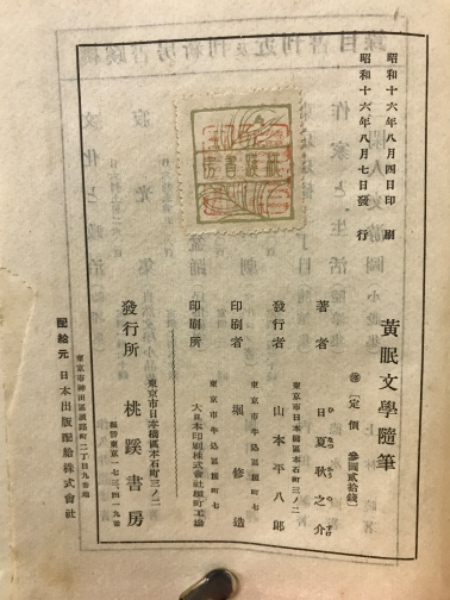 昭和十六年八月四日印刷
昭和十六年八月七日發行
黃眠文學隨筆
定價 參圓貳拾錢
著者 日夏耿之介
ひなつかうのすけ
東京市日本橋區本石町三ノ二
發行者 山本平八郎
東京市牛込區榎町七
印刷者 堀修造
東京市牛込區榎町七
印刷所 大日本印刷株式會社榎町工場
東京市日本橋區本石町三ノ二
發行所 桃蹊書房
振替東京一七三、四一九番
東京市神田區淡路町二丁目九番地
配給元 日本出版配給株式會社
桃蹊書房